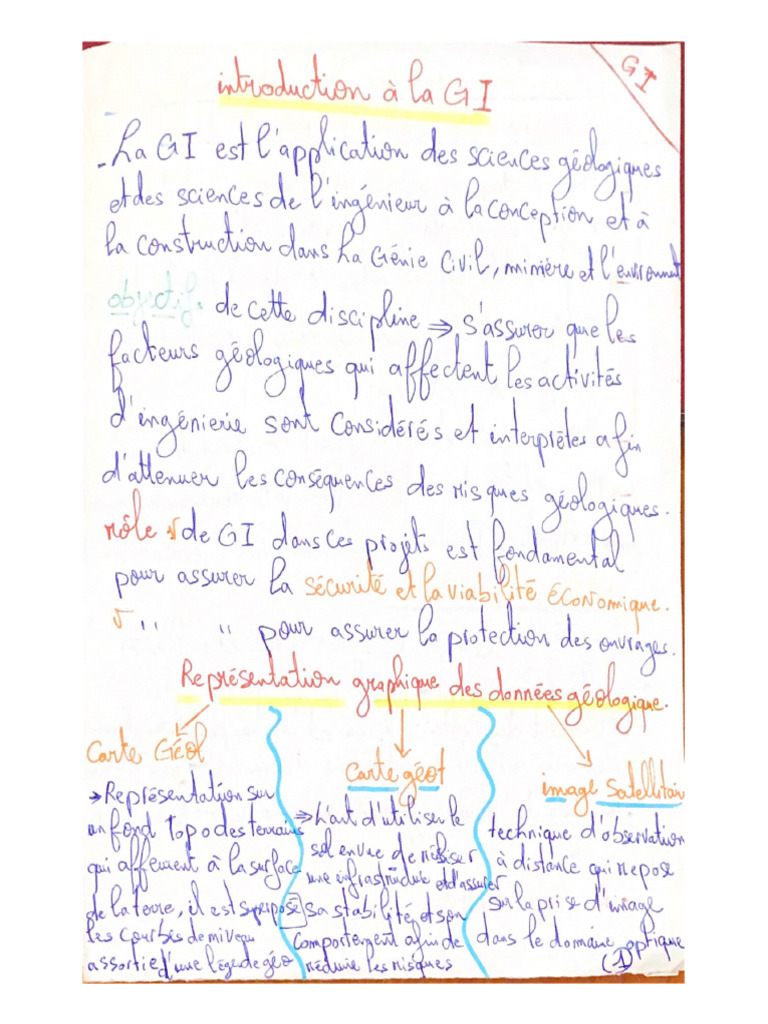 introduction à la GI
GI
- La GI est l'application des sciences géologiques
et des sciences de l'ingénieur à la conception et à
la construction dans La Génie Civil, minière et l'environnemt
objectifs de cette discipline ⇒ s'assurer que les
facteurs géologiques qui affectent les activités
d'ingénierie sont considérés et interprétés afin
d'attenuer les conséquences des risques géologiques.
rôle √ de GI dans ces projets est fondamental
pour assurer la sécurité et la viabilité économique.
√ '' '' pour assurer la protection des ouvrages.
Représentation graphique des données géologique.
Carte Géol
→ Représentation sur
un fond Topo des terrains
qui affleurent à la surface
de la terre, il est superposé
les courbes de niveau
assortie d'une légende géo
Carte géot
⇒ L'art d'utiliser le
sol en vue de réaliser
une infrastructure et d'assurer
sa stabilité, et son
comportement afin de
réduire les risques
image Satellitair
technique d'observation
à distance qui repose
sur la prise d'image
dans le domaine optique
(1)